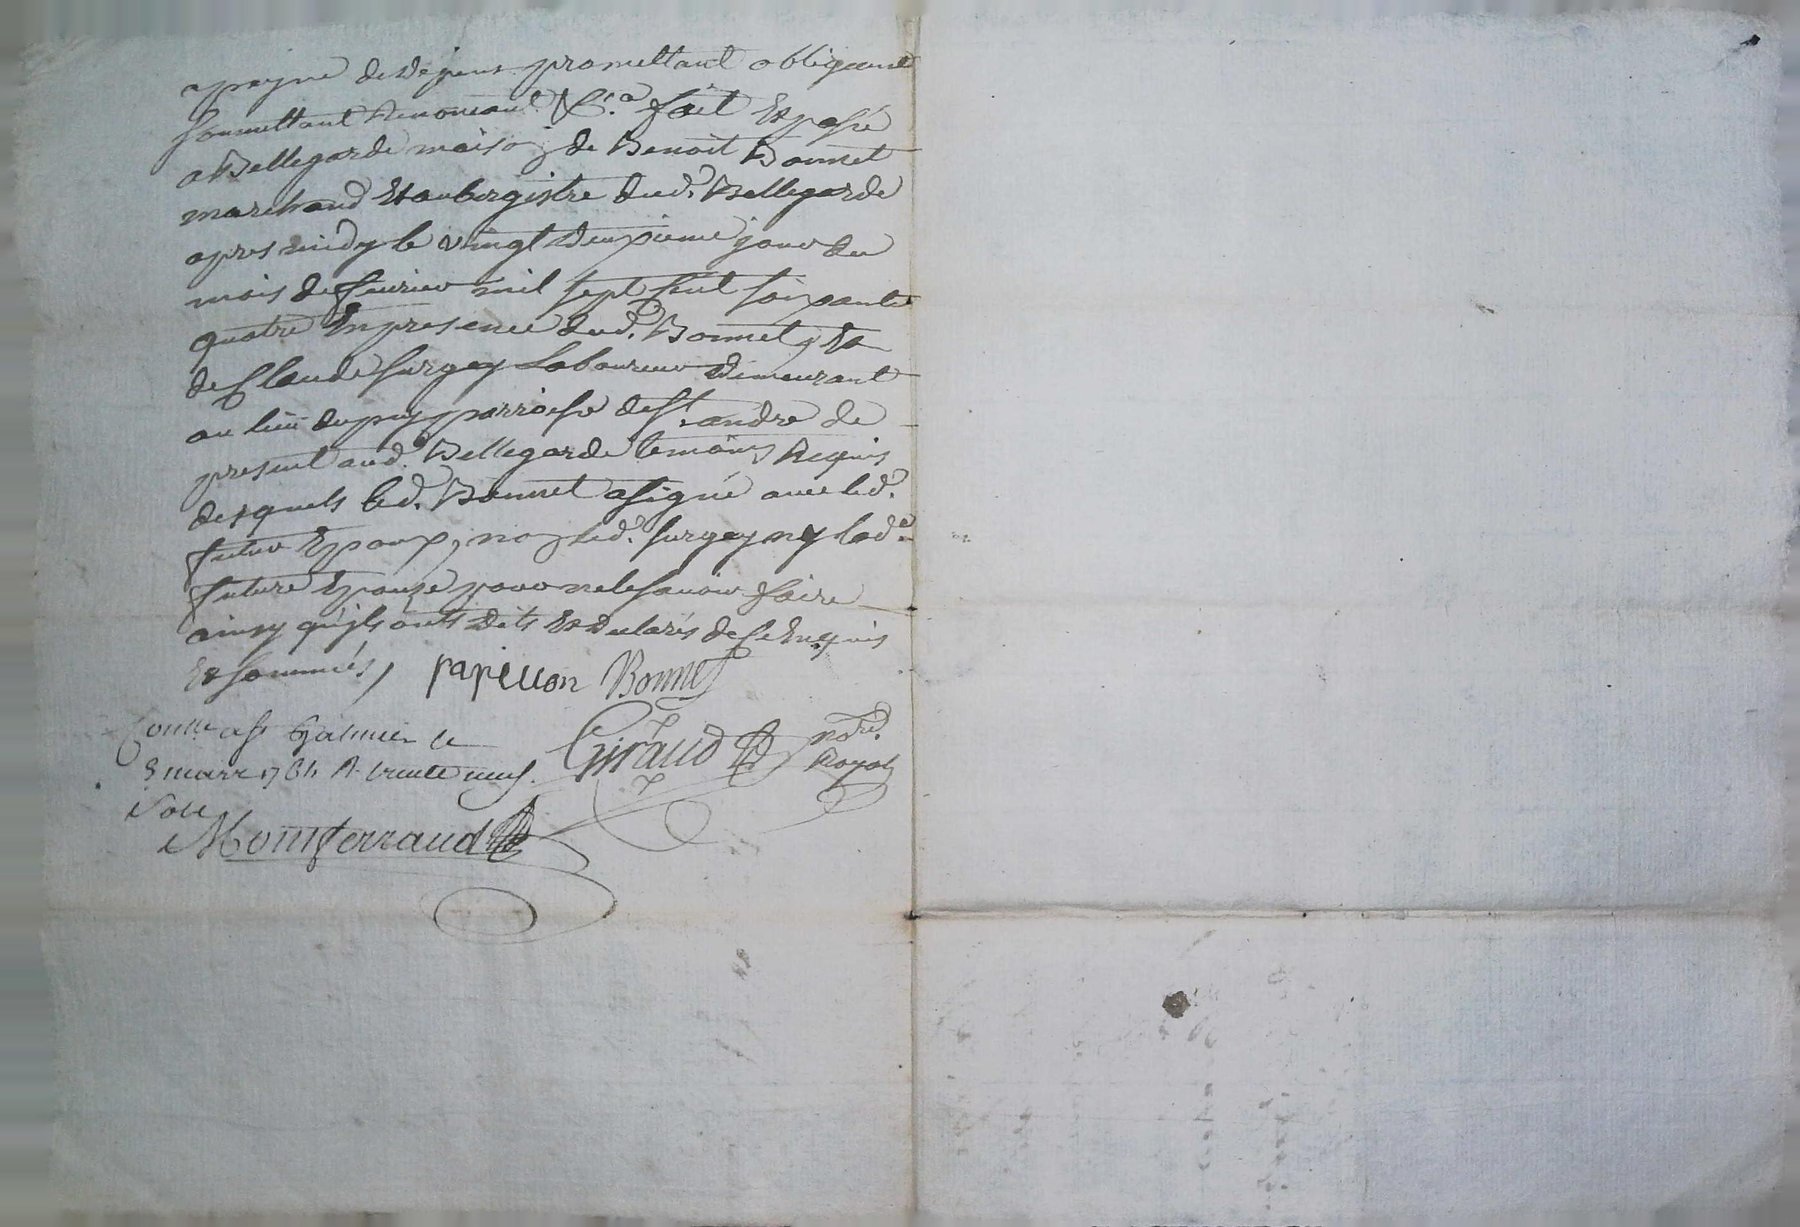 a peyne de depens promettant obligeant
soumettant Renonçant &c.a fait Et passé
a Bellegarde maison de Benoit Bonnet
marchand Et aubergistre dud. Bellegarde
apres midy le vingt deuxieme jour du
mois de feurier mil sept Cent soixante
quatre En presence dud. Bonnet, Et
de Claude Surgey Laboureur demeurant
au lieu du puy parroisse de St. andre de
present aud. Bellegarde temoins Requis
desquels led. Bonnet a signé auec led.
futur Epoux, non led. Surgey ny lad.e
future Epouze pour ne le sauoir faire
ainsy qu'jls onts dits Et declarés de ce Enquis
Et sommés,
papillon Bonnet
Conlle a St Galmier le
8 mars 1764 R. trente neuf
sols
Giraud
notre. Royal
Montterraud